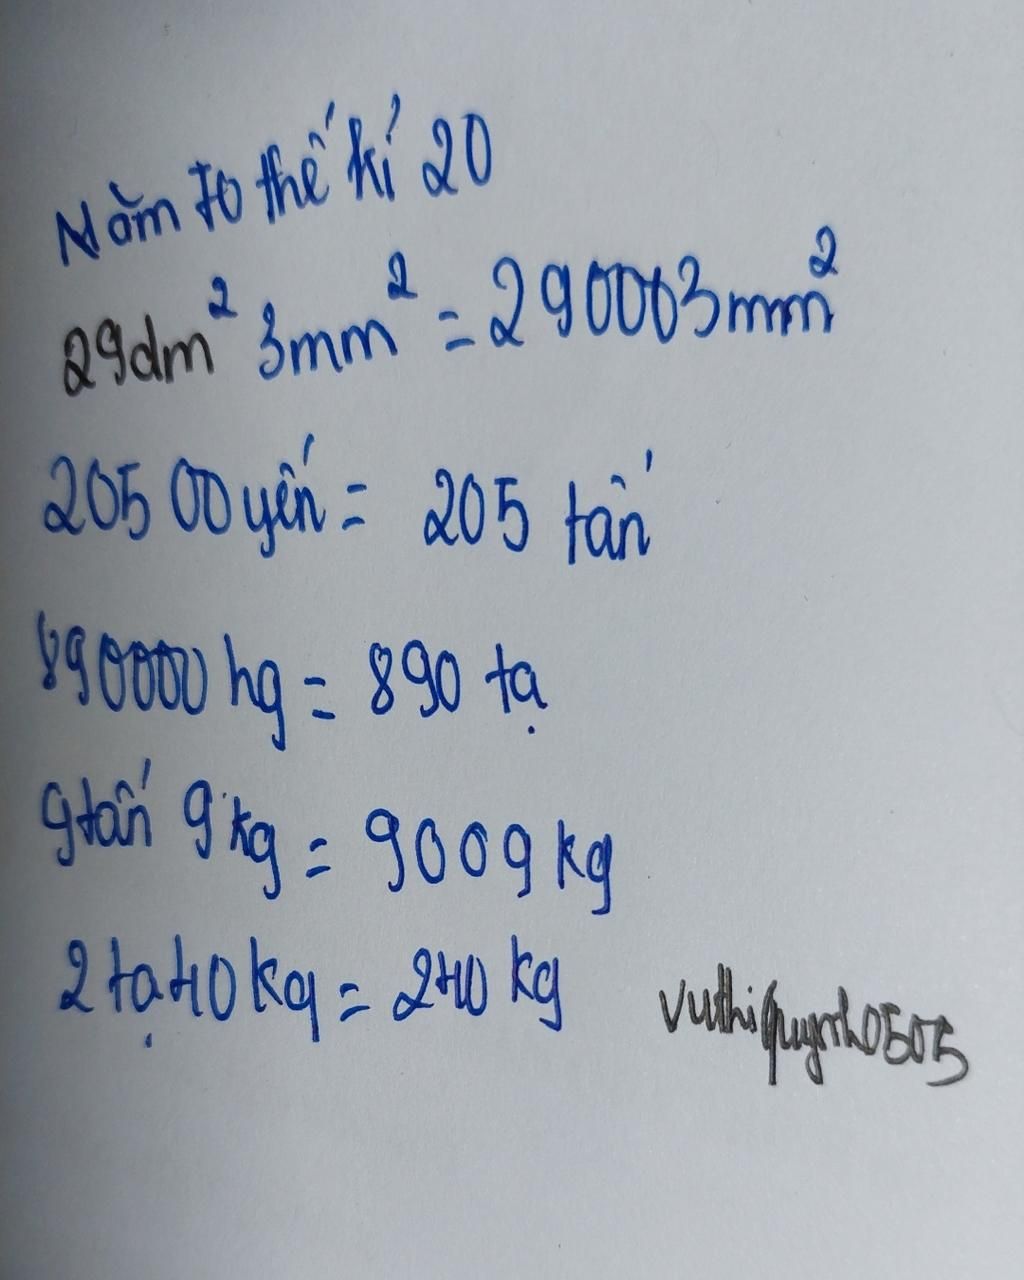 Năm 70 thế kỉ 20
29dm² 3mm² = 290003mm²
20500 yến = 205 tấn
890000 hg = 890 tạ
9 tấn 9 kg = 9009 kg
2 tạ 40 kg = 240 kg
vuthiquynh0505